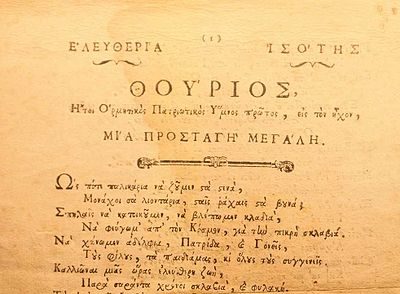 (1)
Ε᾿ΛΕΥΘΕΡΙΑ Ι᾿ΣΟ΄ΤΗΣ
ΘΟΥ΄ΡΙΟΣ,
Ἤτοι Ὁρμητικὸς Πατριωτικὸς Ὕμνος πρῶτος, εἰς τὸν ἦχον,
ΜΙ΄Α ΠΡΟΣΤΑΓΗ` ΜΕΓΑ΄ΛΗ.
Ὣς πότε παλικάρια νὰ ζῶμεν ϛὰ ϛενὰ,
Μονάχοι σὰ λιοντάρια, ϛαῖς ῥάχαις ϛὰ βουνά;
Σπηλαῖς νὰ κατοικοῦμεν, νὰ βλέπωμεν κλαδιὰ,
Νὰ φεύγωμ᾿ ἀπ᾿ τὸν Κόσμον, γιὰ τὴν πικρὴ σκλαβιά.
Νὰ χάνωμεν ἀδέλφια, Πατρίδα, ϗ Γονεῖς,
Τοὺς φίλους, τὰ παιδιάμας, κι ὅλους τοὺς συγγενεῖς
Καλλιῶναι μιᾶς ὥρας ἐλεύθερη ζωὴ,
Παρὰ σαράντα χρόνοι σκλαβιὰ, ϗ φυλακή.